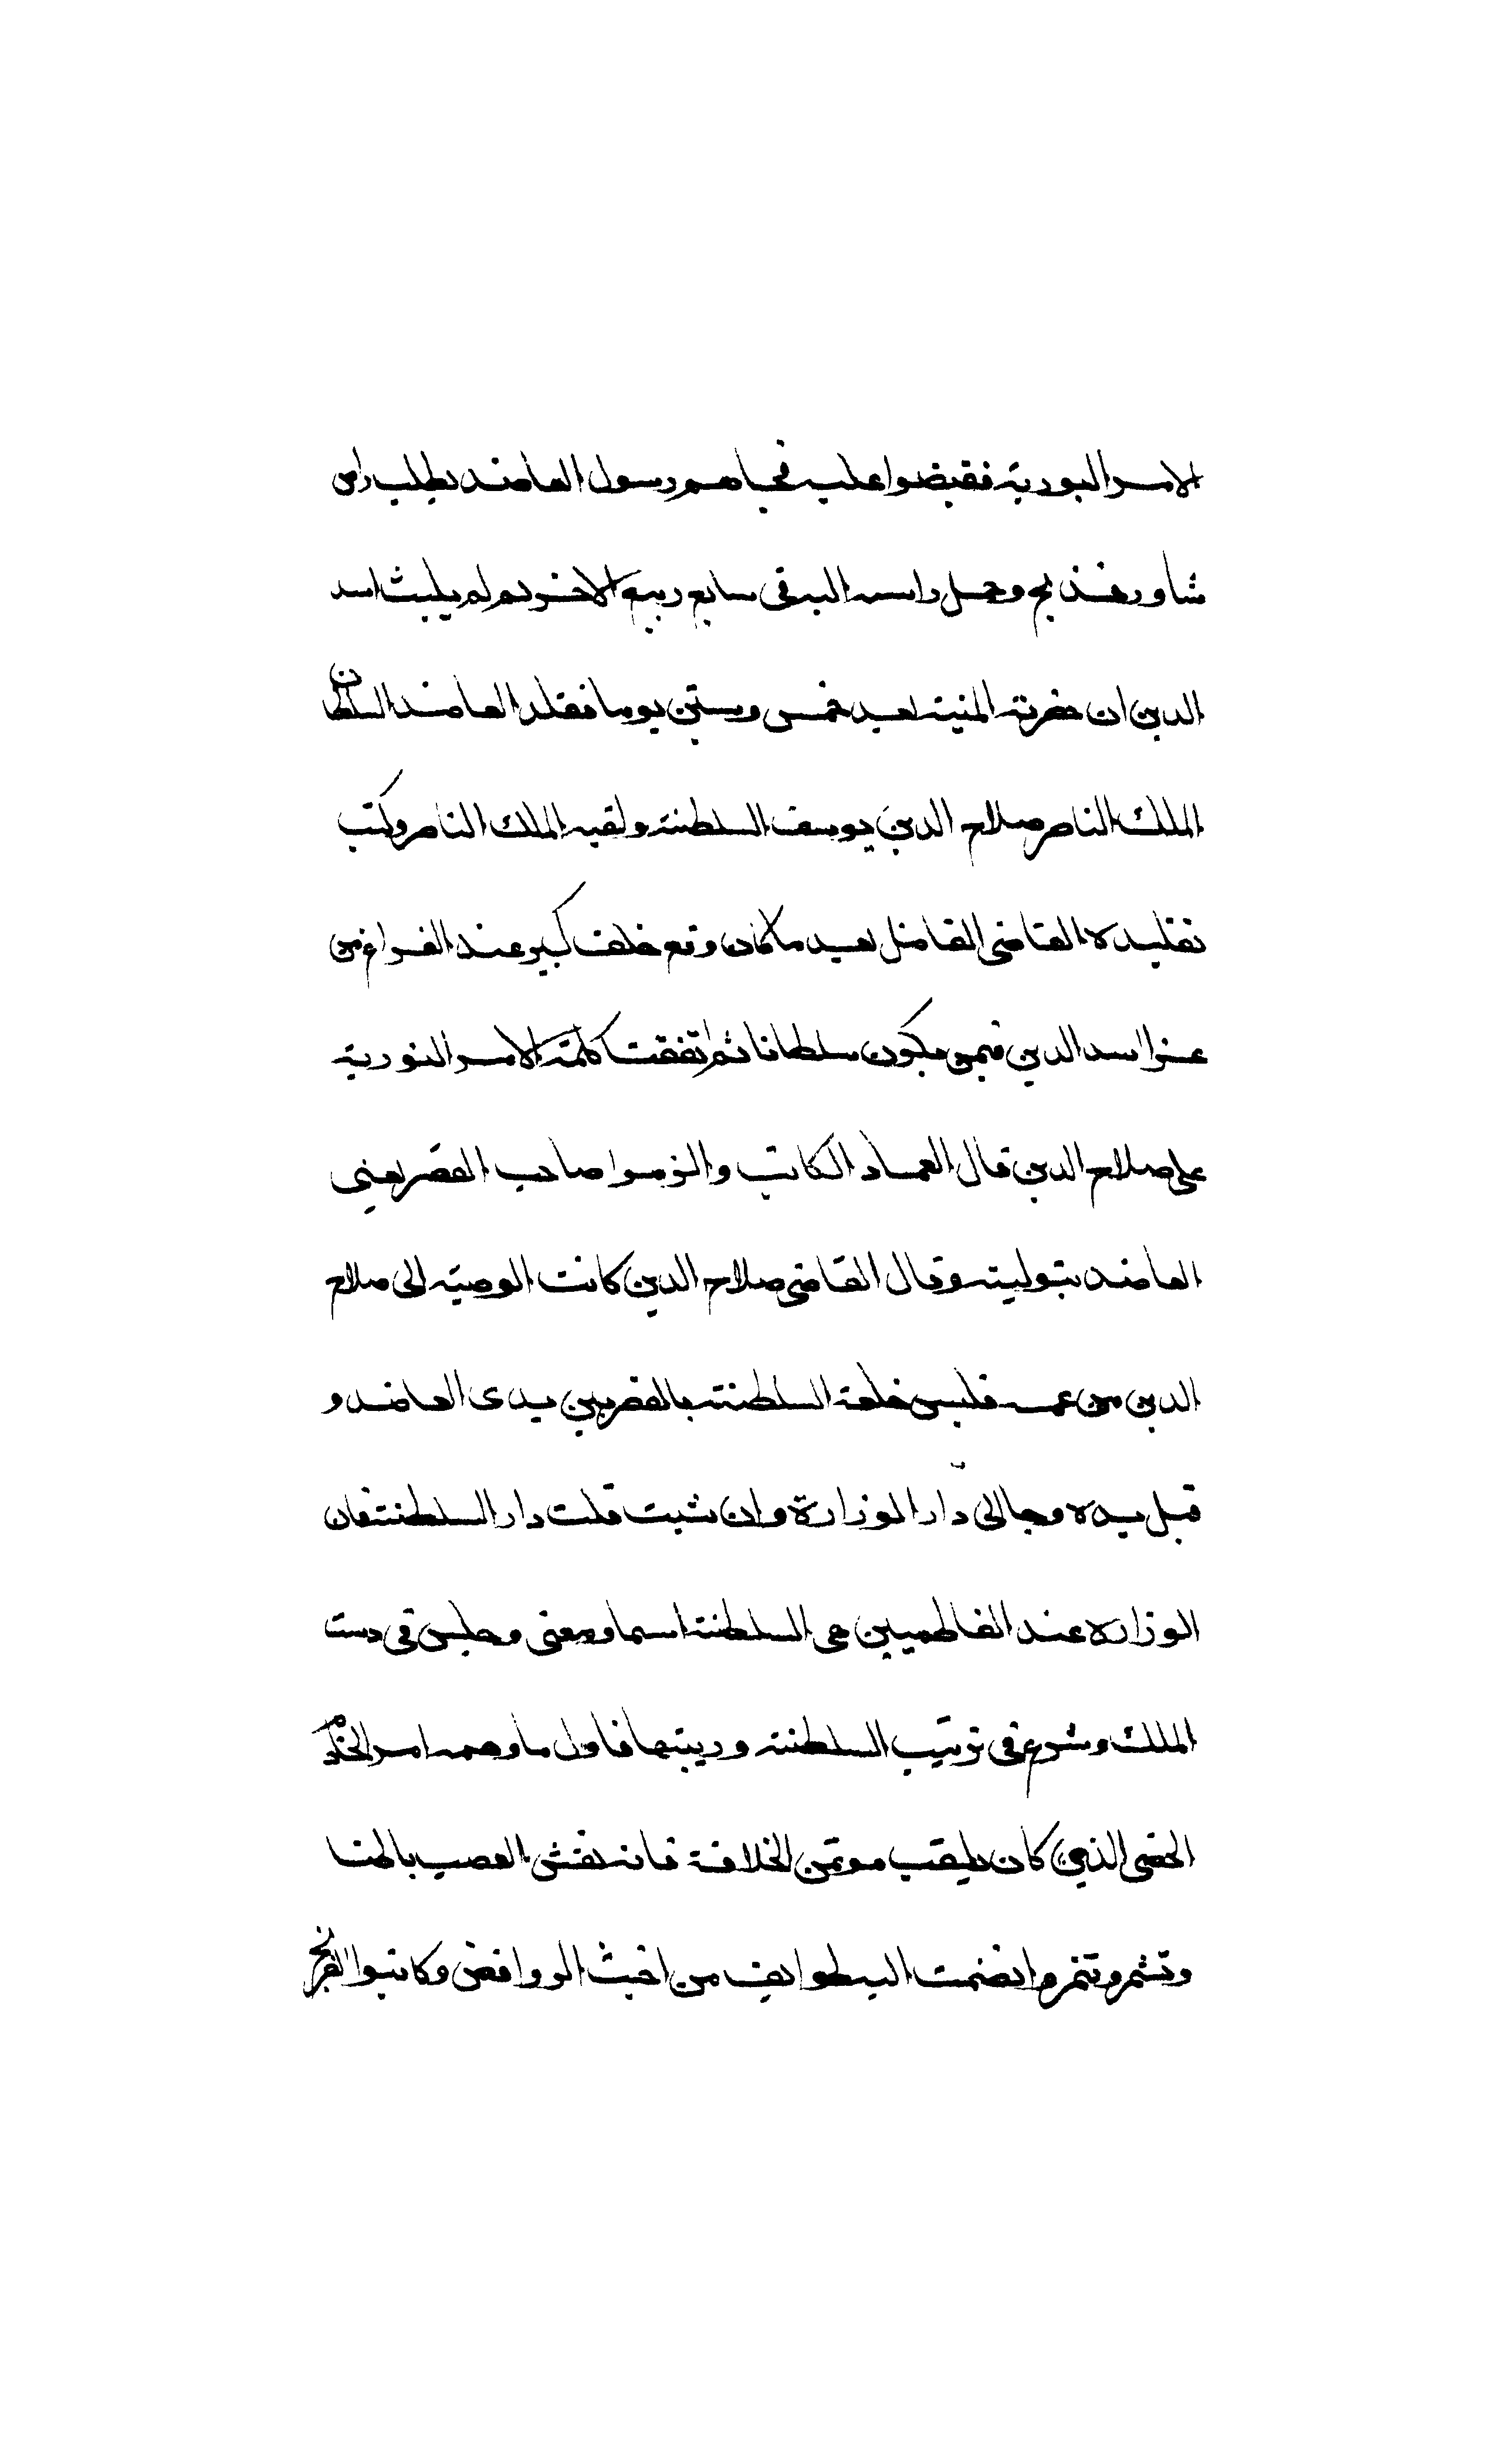 الامرا النورية فقبضوا عليه فجاهم رسول العاضد يطلب راس
شاور فذبح وحمل راسه اليه في سابع ربيع الاخر ثم لم يلبث اسد
الدين ان حضرته المنية بعد خمس وستين يوما فقلد العاضد السلطان
الملك الناصر صلاح الدين يوسف السلطنة ولقبه الملك الناصر وكتب
تقليده القاضي الفاضل بعد ما كان وقع خلف كبير عند الفراغ من
عزا اسد الدين فيمن يكون سلطانا ثم اتفقت كلمة الامرا النورية
على صلاح الدين قال العماد الكاتب والزموا صاحب القصر يعني
العاضد بتوليته وقال القاضي صلاح الدين كانت الوصية الى صلاح
الدين من عمه فلبس خلعة السلطنة بالقصر بين يدى العاضد و
قبل يده وجا الى دار الوزارة وان شيت قلت دار السلطنة فان
الوزاره عند الفاطميين هي السلطنة اسما ومعنى وجلس في دست
الملك وشرع في ترتيب السلطنة وربيتها فاول ما وهمه امر الخادم
الخصي الذي كان يلقب موتمن الخلافة فانه نقش العصب بالهنا
وتشمر وتنمر وانضمت اليه طوايف من اخبث الروافض وكاتبوا الفرنج